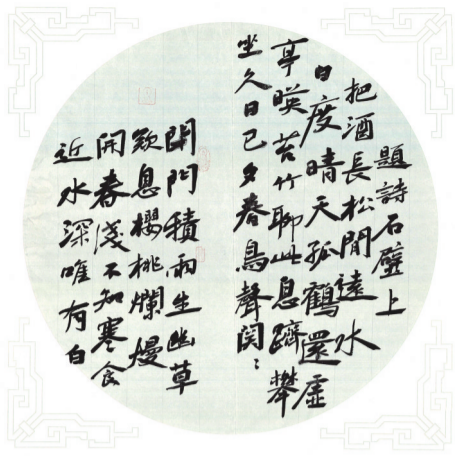 題詩石壁上
把酒長松間遠水
白度晴天孤鶴還虛
亭暎苔竹聊此息躋攀
坐久日已夕春鳥聲関〻
閉門積雨生幽草
歎息櫻桃爛熳
開春淺不知寒食
近水深唯有白